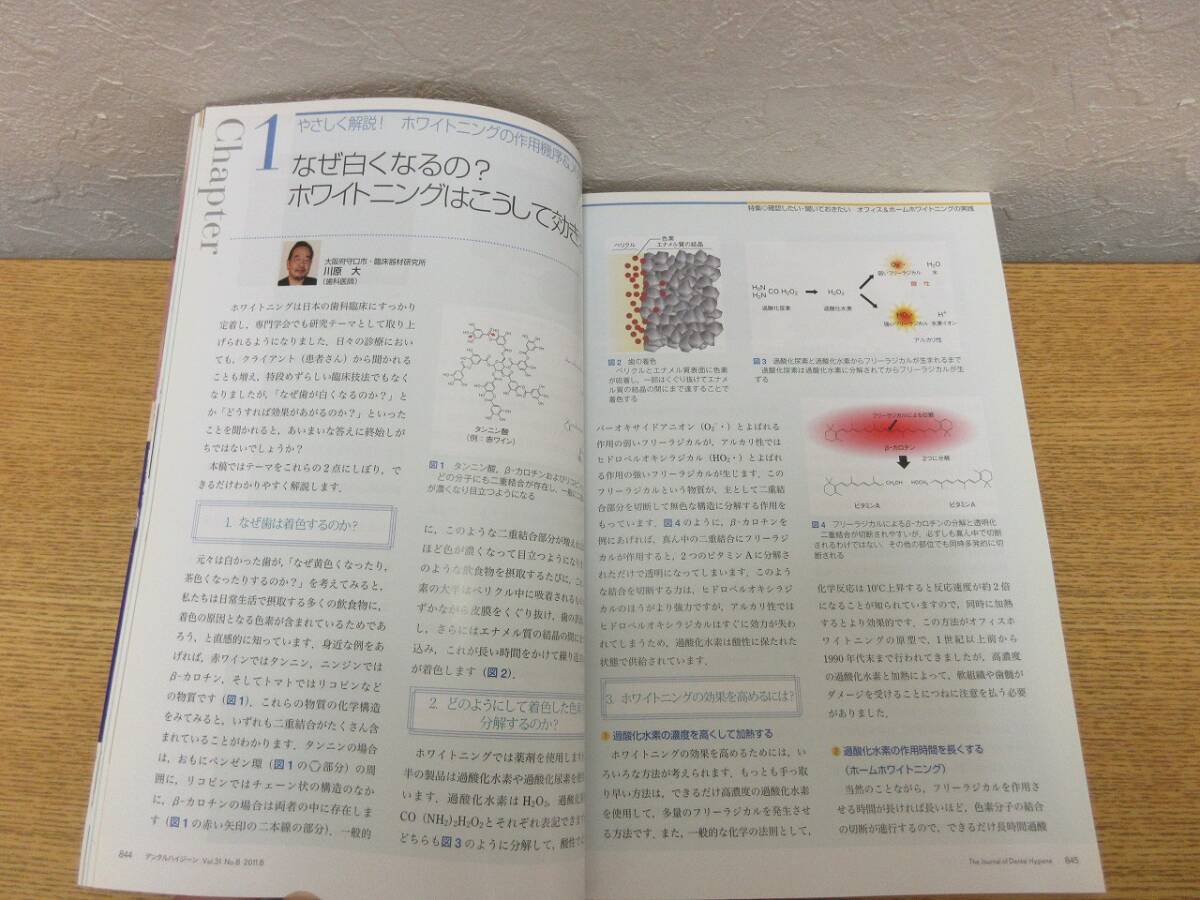 Chapter
1
やさしく解説! ホワイトニングの作用機序
なぜ白くなるの?
ホワイトニングはこうして効き
大阪府守口市・臨床器材研究所
川原 大
(歯科医師)
ホワイトニングは日本の歯科臨床にすっかり
定着し,専門学会でも研究テーマとして取り上
げられるようになりました.日々の診療におい
ても,クライアント(患者さん)から聞かれる
ことも増え,特段めずらしい臨床技法でもなく
なりましたが,「なぜ歯が白くなるのか?」と
か「どうすれば効果があがるのか?」といった
ことを聞かれると,あいまいな答えに終始しが
ちではないでしょうか?
本稿ではテーマをこれらの2点にしぼり,で
きるだけわかりやすく解説します.
1. なぜ歯は着色するのか?
元々は白かった歯が,「なぜ黄色くなったり,
茶色くなったりするのか?」を考えてみると,
私たちは日常生活で摂取する多くの飲食物に,
着色の原因となる色素が含まれているためであ
ろう,と直感的に知っています.身近な例をあ
げれば,赤ワインではタンニン,ニンジンでは
β-カロチン,そしてトマトではリコピンなど
の物質です(図1).これらの物質の化学構造
をみてみると,いずれも二重結合がたくさん含
まれていることがわかります.タンニンの場合
は,おもにベンゼン環(図1の 部分)の周
囲に,リコピンではチェーン状の構造のなか
に,β-カロチンの場合は両者の中に存在しま
す(図1の赤い矢印の二本線の部分).一般的
タンニン酸
(例:赤ワイン)
図1 タンニン酸,β-カロチンおよびリコピ
どの分子にも二重結合が存在し,一般に
が濃くなり目立つようになる
に,このような二重結合部分が増えれば
ほど色が濃くなって目立つようになり
のような飲食物を摂取するたびに,
素の大半はペリクル中に吸着されるも
ずかながら皮膜をくぐり抜け,歯の表
し,さらにはエナメル質の結晶の間に
込み,これが長い時間をかけて繰り返
が着色します(図2).
2. どのようにして着色した色
分解するのか?
ホワイトニングでは薬剤を使用しま
半の製品は過酸化水素や過酸化尿素を使
います.過酸化水素はH₂O₂,過酸化
CO(NH₂)₂H₂O₂とそれぞれ表記できま
どちらも図3のように分解して,酸性
844 デンタルハイジーン Vol.31 No.8 2011.8
特集◇確認したい・聞いておきたい オフィス&ホームホワイトニングの実践
ペリクル
色素
エナメル質の結晶
図2 歯の着色
ペリクルとエナメル質表面に色素
が吸着し,一部はくぐり抜けてエナメ
ル質の結晶の間にまで達することで
着色する
H₂N
H₂N CO H₂O₂
過酸化尿素
H₂O₂
過酸化水素
弱いフリーラジカル
H₂O
水
酸 性
HO₂
強いフリーラジカル
H⁺
水素イオン
アルカリ性
図3 過酸化尿素と過酸化水素からフリーラジカルが生まれるまで
過酸化尿素は過酸化水素に分解されてからフリーラジカルが生
ずる
フリーラジカルによる切断
β-カロチン
2つに分解
CH₂OH
HOCH₂
ビタミンA
ビタミンA
図4 フリーラジカルによるβ-カロチンの分解と透明化
二重結合が切断されやすいが,必ずしも真ん中で切断
されるわけではない.その他の部位でも同時多発的に切
断される
パーオキサイドアニオン(O₂⁻・)とよばれる
作用の弱いフリーラジカルが,アルカリ性では
ヒドロペルオキシラジカル(HO₂・)とよばれ
る作用の強いフリーラジカルが生じます.この
フリーラジカルという物質が,主として二重結
合部分を切断して無色な構造に分解する作用を
もっています.図4のように,β-カロチンを
例にあげれば,真ん中の二重結合にフリーラジ
カルが作用すると,2つのビタミンAに分解さ
れただけで透明になってしまいます.このよう
な結合を切断する力は,ヒドロペルオキシラジ
カルのほうがより強力ですが,アルカリ性では
ヒドロペルオキシラジカルはすぐに効力が失わ
れてしまうため,過酸化水素は酸性に保たれた
状態で供給されています.
3. ホワイトニングの効果を高めるには?
1 過酸化水素の濃度を高くして加熱する
ホワイトニングの効果を高めるためには,い
ろいろな方法が考えられます.もっとも手っ取
り早い方法は,できるだけ高濃度の過酸化水素
を使用して,多量のフリーラジカルを発生させ
る方法です.また,一般的な化学の法則として,
化学反応は10℃上昇すると反応速度が約2倍
になることが知られていますので,同時に加熱
するとより効果的です.この方法がオフィスホ
ワイトニングの原型で,1世紀以上前から
1990年代末まで行われてきましたが,高濃度
の過酸化水素と加熱によって,軟組織や歯髄が
ダメージを受けることにつねに注意を払う必要
がありました.
2 過酸化水素の作用時間を長くする
(ホームホワイトニング)
当然のことながら,フリーラジカルを作用さ
せる時間が長ければ長いほど,色素分子の結合
の切断が進行するので,できるだけ長時間過酸
The Journal of Dental Hygiene 845